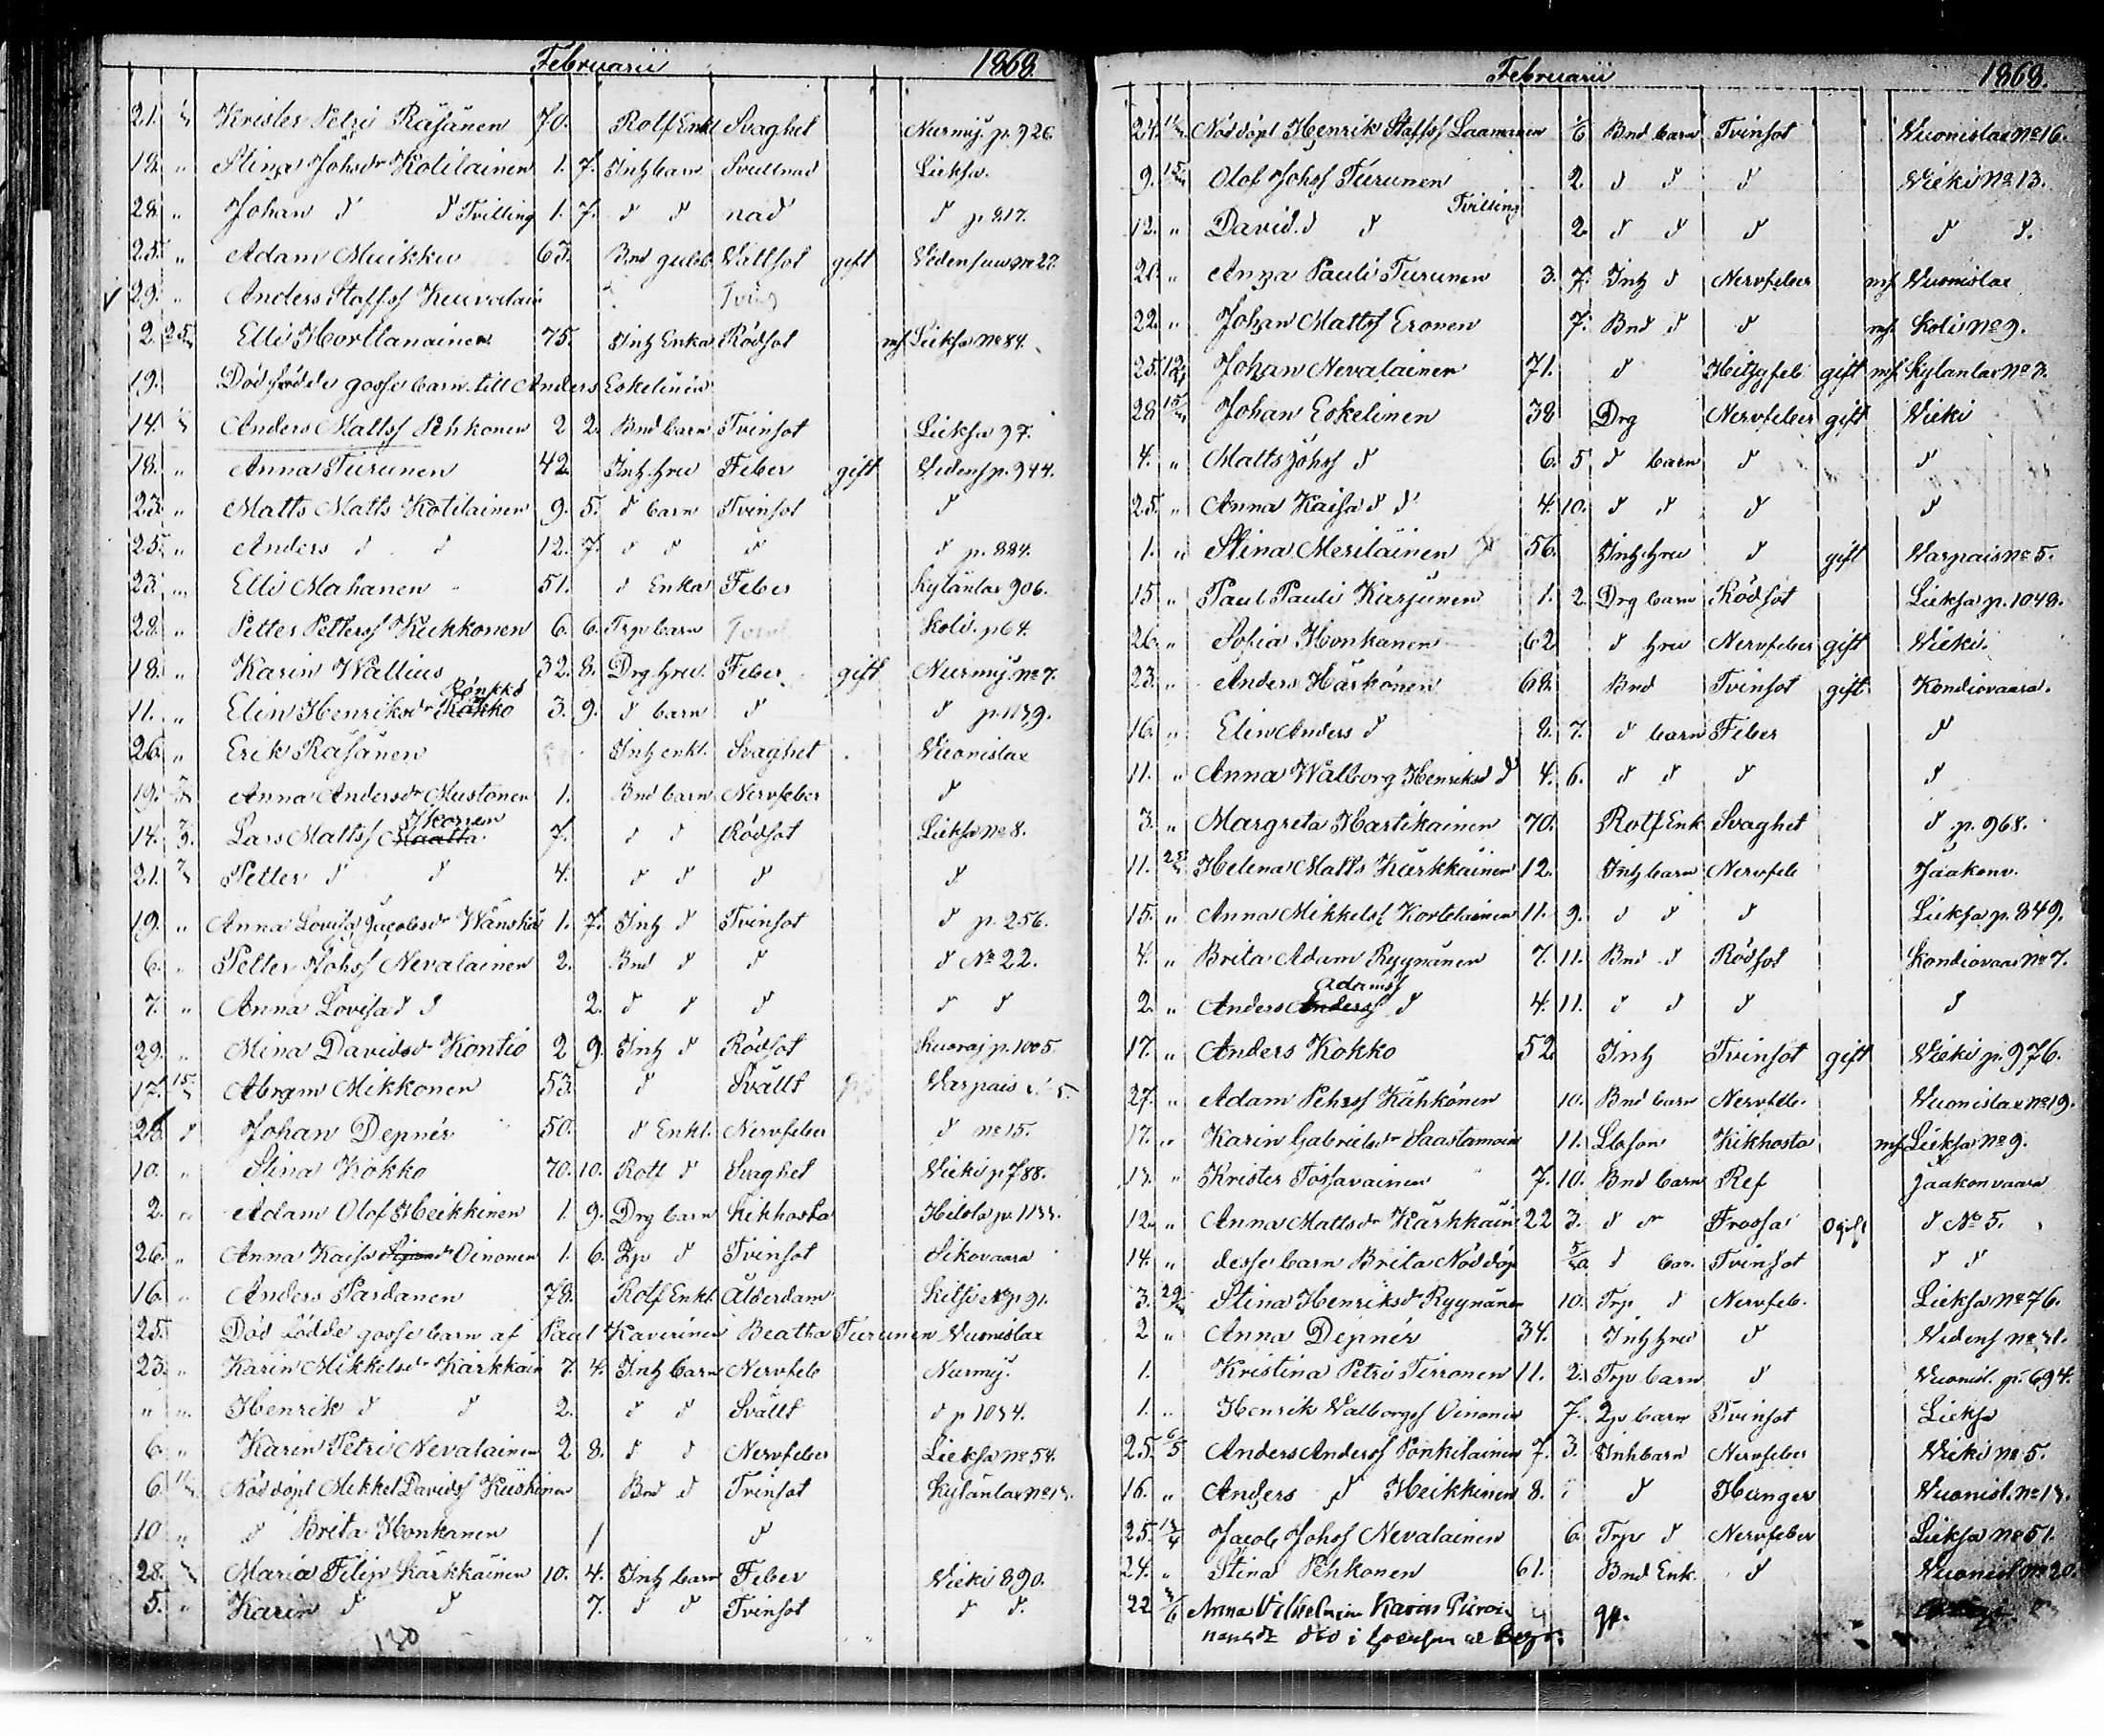 Februarii 1868.
21. Krister Petri Räsänen 70. Rotf Enkl Svaghet Nurmij. p. 926
18. " Stina Johsdr Kotilainen 1. 7. Inh barn Svullnad Lieksa.
28. " Johan d d Tvilling 1. 7. d d nad d p. 817.
25. " Adam Muikku 63. Bnd gubb Vattsot gift Videnf uuw No 27.
29. " Anders Staffsf Kuivalain
2. 25 Elli Hortlanainen 75. Inh Enka Rödsot mf Lieksa No 84.
19. Död födde gosse barn till Anders Eskelinen
14. Anders Mattsf Pehkonen 2 2. Bnd barn Tvinsot Lieksa 97.
18. " Anna Turunen 42. Inh hru Feber gift Videnf p. 944.
23. " Matts Matts Kotilainen 9. 5. d barn Tvinsot d
25. " Anders d d 12. 7. d d d d p. 884.
23. " Elli Mahanen 51. d Enka Feber Kylänlax 906.
28. " Petter Pettersf Kukkonen 6. 6. Trp barn Koli. p 64.
18. " Karin Wallius 32. 8. Drg hru Feber gift Nurmij. No 7.
Rönkkö
11. " Elin Henriksdr Kokko 3. 9. d barn d d p. 1139.
26. " Erik Räsänen Inh enkl. Svaghet Vuonislax
19. Anna Andersdr Mustonen 1. Bnd barn Nervfeber d
Ikonen
14. Lars Mattsf Maatta 7. d d Rödsot Lieksa No 8.
21. Petter d d 4. d d d d
19. " Anna Lovisa Jacobsdr Wänskä 1. 7. Inh d Tvinsot d p. 256.
6. " Petter Johsf Nevalainen 2. Bnd d d d No 22.
7. " Anna Lovisa d d 2. d d d d d
29. " Mina Davidsdr Kontio 2 9. Inh d Rödsot Kuoraj p. 1005.
17. 15 Abram Mikkonen 53. d Svällt Varpais 5.
26 d Johan Depnér 50. d Enkl. Nervfeber d No 15.
10. " Stina Kokko 70. 10. Rott d Svaghet Vieki p 788.
2. " Adam Olofs Heikkinen 1. 9. Drg barn Kikhosta Hilola p. 1133.
26. " Anna Kaisa Oinonen 1. 6. Lp d Tvinsot Sikovaara
16. " Anders Pardanen 78. Rotf Enkl. Ålderdam Kitsi p. 91.
25. Död födde gosse barn af Paul Kaverinen Beatha Turunen Vuonislax
23. " Karin Mikkelsdr Karkkain 7. 4. Inh barn Nervfeb Nurmij.
" " Henrik d d 2. d d Svällt d p 1034.
6. " Karin Petri Nevalainen 2 8. d d Nervfeber Lieksa No 54.
6. 11 Nöddöpt Mikkel Davidsf Kuskinen Bnd d Tvinsot Kylänlax No 13.
10 " d Brita Honkanen 1 d
28. Maria Filip Kärkkäinen 10. 4. Inh barn Feber Vieki 890.
5. " Karin d d 7. d d Tvinsot d d.
130
Februarii 1868.
24. Nöddöpt Henrik Staffsf Laamanen 1/6 Bnd barn Tvinsot Vuonislax No 16.
9. 15 Olof Johsf Turunen 2. d d d Vieki No 13.
12. " David d d Tvilling 2. d d d d d.
20. " Anna Pauli Turunen 3. 7. Inh d Nervfeber mf Vuonislax
22. " Johan Mattsf Eronen 7. Bnd d d mf Koli No 9.
25. Johan Nevalainen 71. d Hitsgfeb gift mf Kylänlax No 3.
28 15 Johan Eskelinen 38 Drg Nervfeber gift Vieki
4. " Matts Johsf d 6. 5 d barn d d
25. " Anna Kaisa d d 4. 10. d d d d
1. " Stina Meriläinen 56. Inh hru d gift Varpais No 5.
15 " Paul Pauli Karjunen 1. 2. Drg barn Rödsot Lieksa p. 1048.
26. " Sofia Honkanen 62 d hru Nervfeber gift Vieki.
23. " Anders Härkönen 68. Bnd Tvinsot gift Kondiovaara.
16. " Elin Anders d 8. 7. d barn Feber d
11. " Anna Walborg Henriksd d 4. 6. d d d d
3. " Margreta Hartikainen 70. Rotf Enk Svaghet d p. 968.
11. 25 Helena Matts Kärkkäinen 12. Inh barn Nervfeb Jäakonv.
15. " Anna Mikkelsf Kortelainen 11. 9. d d d Lieksa p. 849.
4. " Brita Adam Ryynänen 7. 11. Bnd d Rödsot Kondiovaar No 7.
Adamsf
2. " Anders Andersf d 4. 11. d d d d
17. " Anders Kokko 52. Inh Tvinsot gift Vieki p. 976.
27. " Adam Pehrsf Kähkönen 10. Bnd barn Nervfeb. Vuonislax No 19.
17. " Karin Gabrielsdr Saastamoin 11. Lbson Kikhosta mf Lieksa No 9.
13. " Krister Tossavainen 7. 10. Bnd barn Ref Jäakonvaara
12. " Anna Mattsdr Kärkkäin 22 3. d dr Frossa ogift d No 5.
14. " desse barn Brita Nöddöp d bar. Tvinsot d d
3. 29 Stina Henriksdr Ryynänen 10. Trp d Nervfeb. Lieksa No 76.
2 " Anna Depnér 34. Inh hru d Videnf No 31.
1. Kristina Petri Tirronen 11. 2. Trp barn d Vuonisl. p. 694.
1. " Henrik Walborgsf Oinonen 7. Lp barn Tvinsot Lieksa
25. 6/5 Anders Andersf Ponkilainen 7. 3. Inh barn Nervfeber Vieki No 5.
16. " Anders d Heikkinen 8. d Hunger Vuonisl. No 13.
25. Jacob Johsf Nevalainen 6. Trp d Nervfeber Lieksa No 51.
24. " Stina Pehkonen 61. Bnd Enk. d Vuonisl No 20.
22 Anna Vilhelmina Karin Piiroi
nens dr död i